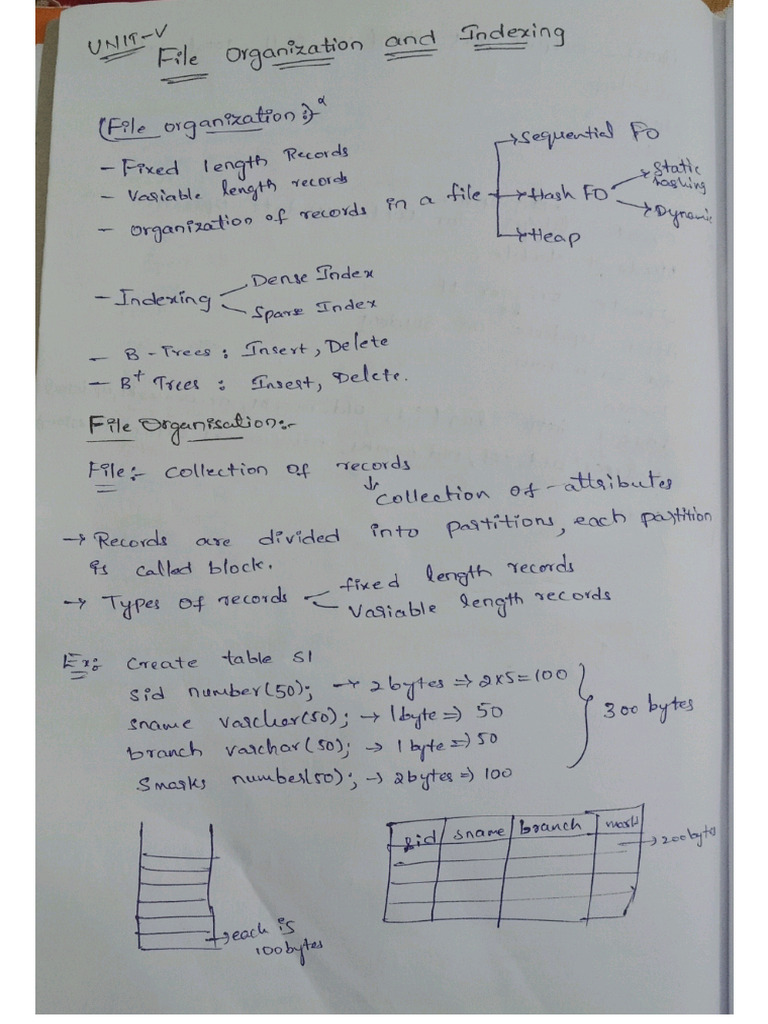 UNIT-V
File Organization and Indexing
(File organization:-)
- Fixed length Records
- Variable length records
- Organization of records in a file
→ Sequential FO
→ Hash FO
→ Static hashing
→ Dynamic
→ Heap
- Indexing
Dense Index
Spare Index
- B-Trees: Insert, Delete
- B+ Trees: Insert, Delete.
File Organisation:-
File:- Collection of records
↳ Collection of attributes
→ Records are divided into partitions, each partition
is called block.
→ Types of records
fixed length records
Variable length records
Ex: Create table S1
Sid number(50); → 2 bytes ⇒ 2x5=100
Sname varchar(50); → 1 byte ⇒ 50
branch varchar(50); → 1 byte ⇒ 50
Smarks number(50); → 2 bytes ⇒ 100
300 bytes
sid sname branch mark
→ 200 byte
→ each is
100 bytes